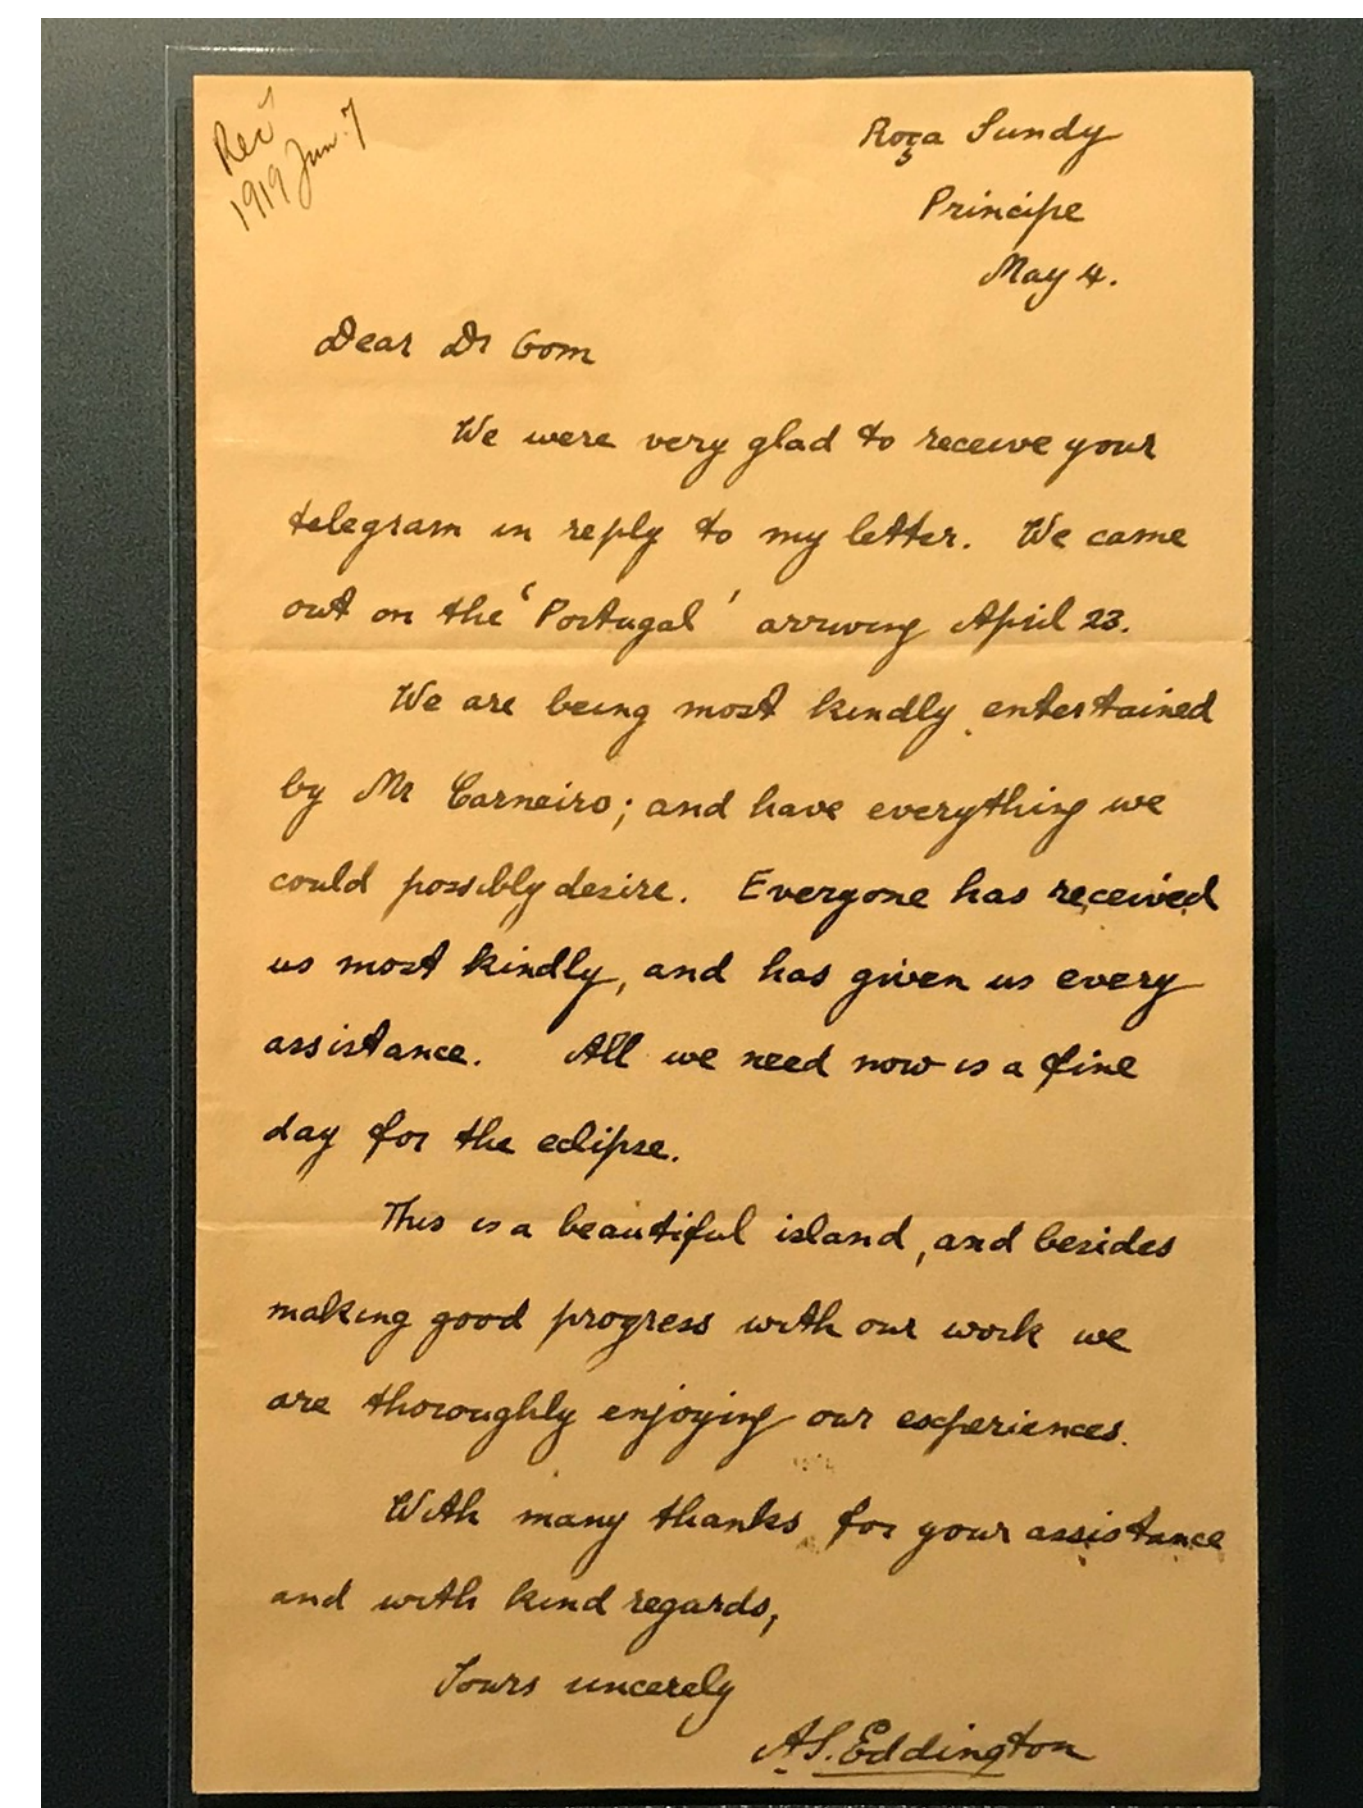 Rec^d
1919 Jun. 7
Roça Sundy
Principe
May 4.
Dear Dr Gom
We were very glad to receive your
telegram in reply to my letter. We came
out on the 'Portugal' arriving April 23.
We are being most kindly entertained
by Mr Carneiro; and have everything we
could possibly desire. Everyone has received
us most kindly, and has given us every
assistance. All we need now is a fine
day for the eclipse.
This is a beautiful island, and besides
making good progress with our work we
are thoroughly enjoying our experiences.
With many thanks for your assistance
and with kind regards,
Yours sincerely
A.S. Eddington